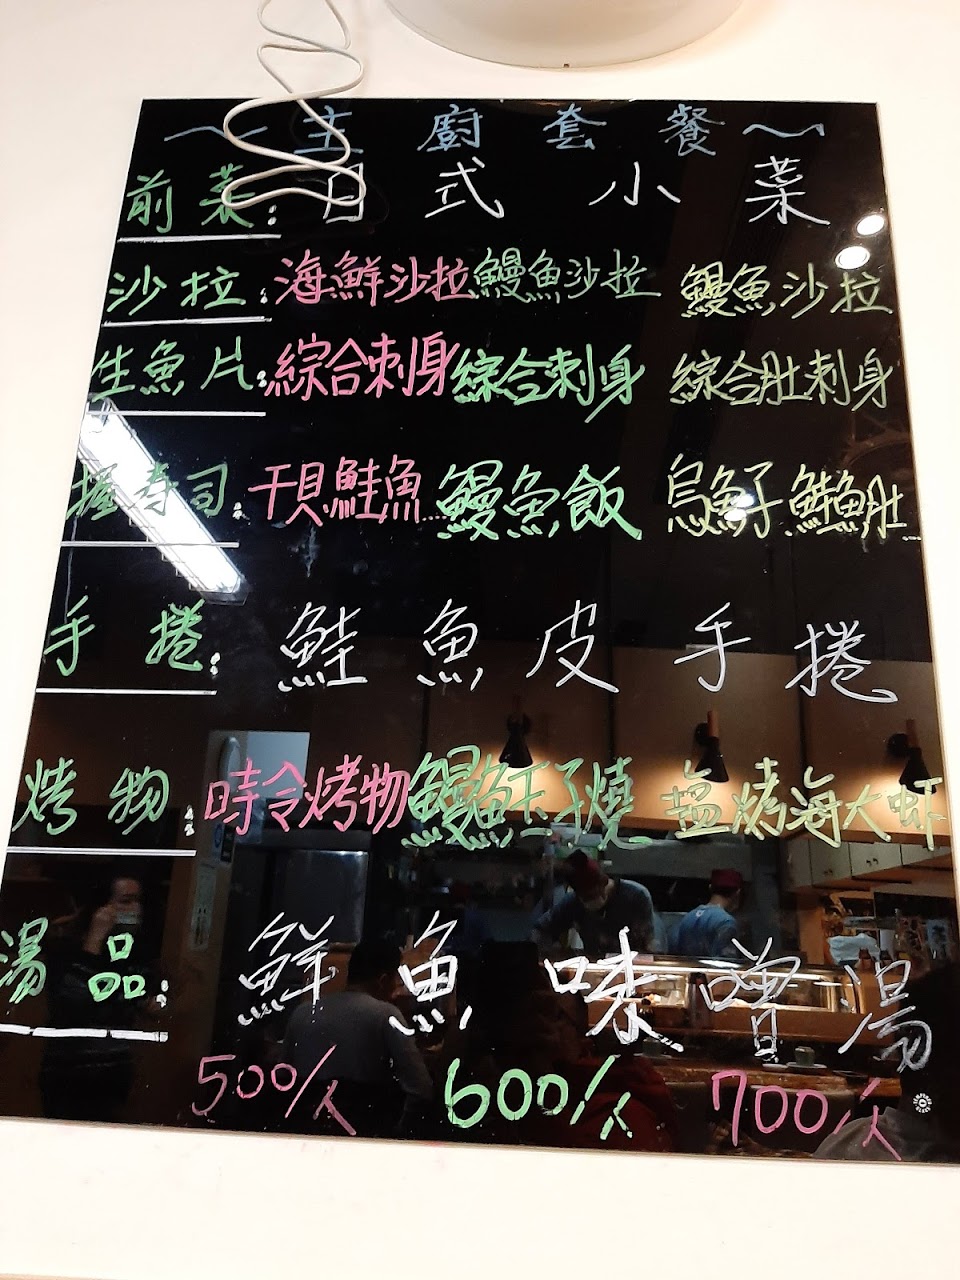 ~主廚套餐~
前菜: 日式小菜
沙拉: 海鮮沙拉 鰻魚沙拉 鰻魚沙拉
生魚片: 綜合刺身 綜合刺身 綜合肚刺身
握壽司: 干貝鮭魚... 鰻魚飯 烏魚子鮭魚肚...
手捲: 鮭魚皮手捲
烤物: 時令烤物 鰻魚玉子燒 塩烤海大虾
湯品: 鮮魚味噌湯
500/人 600/人 700/人